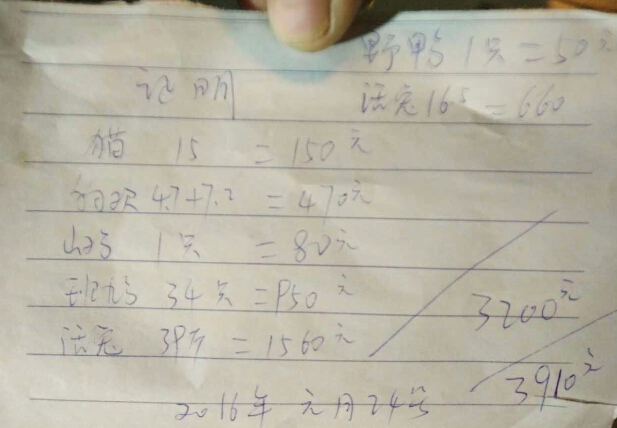 野鸭1只=50元
证明 活兔16.5=660
猫 15 =150元
4.7+7.2 =470元
山鸡 1只 =80元
34只 =950元
3200元
活兔 39斤 =1560元
3910元
2016年 元月24号